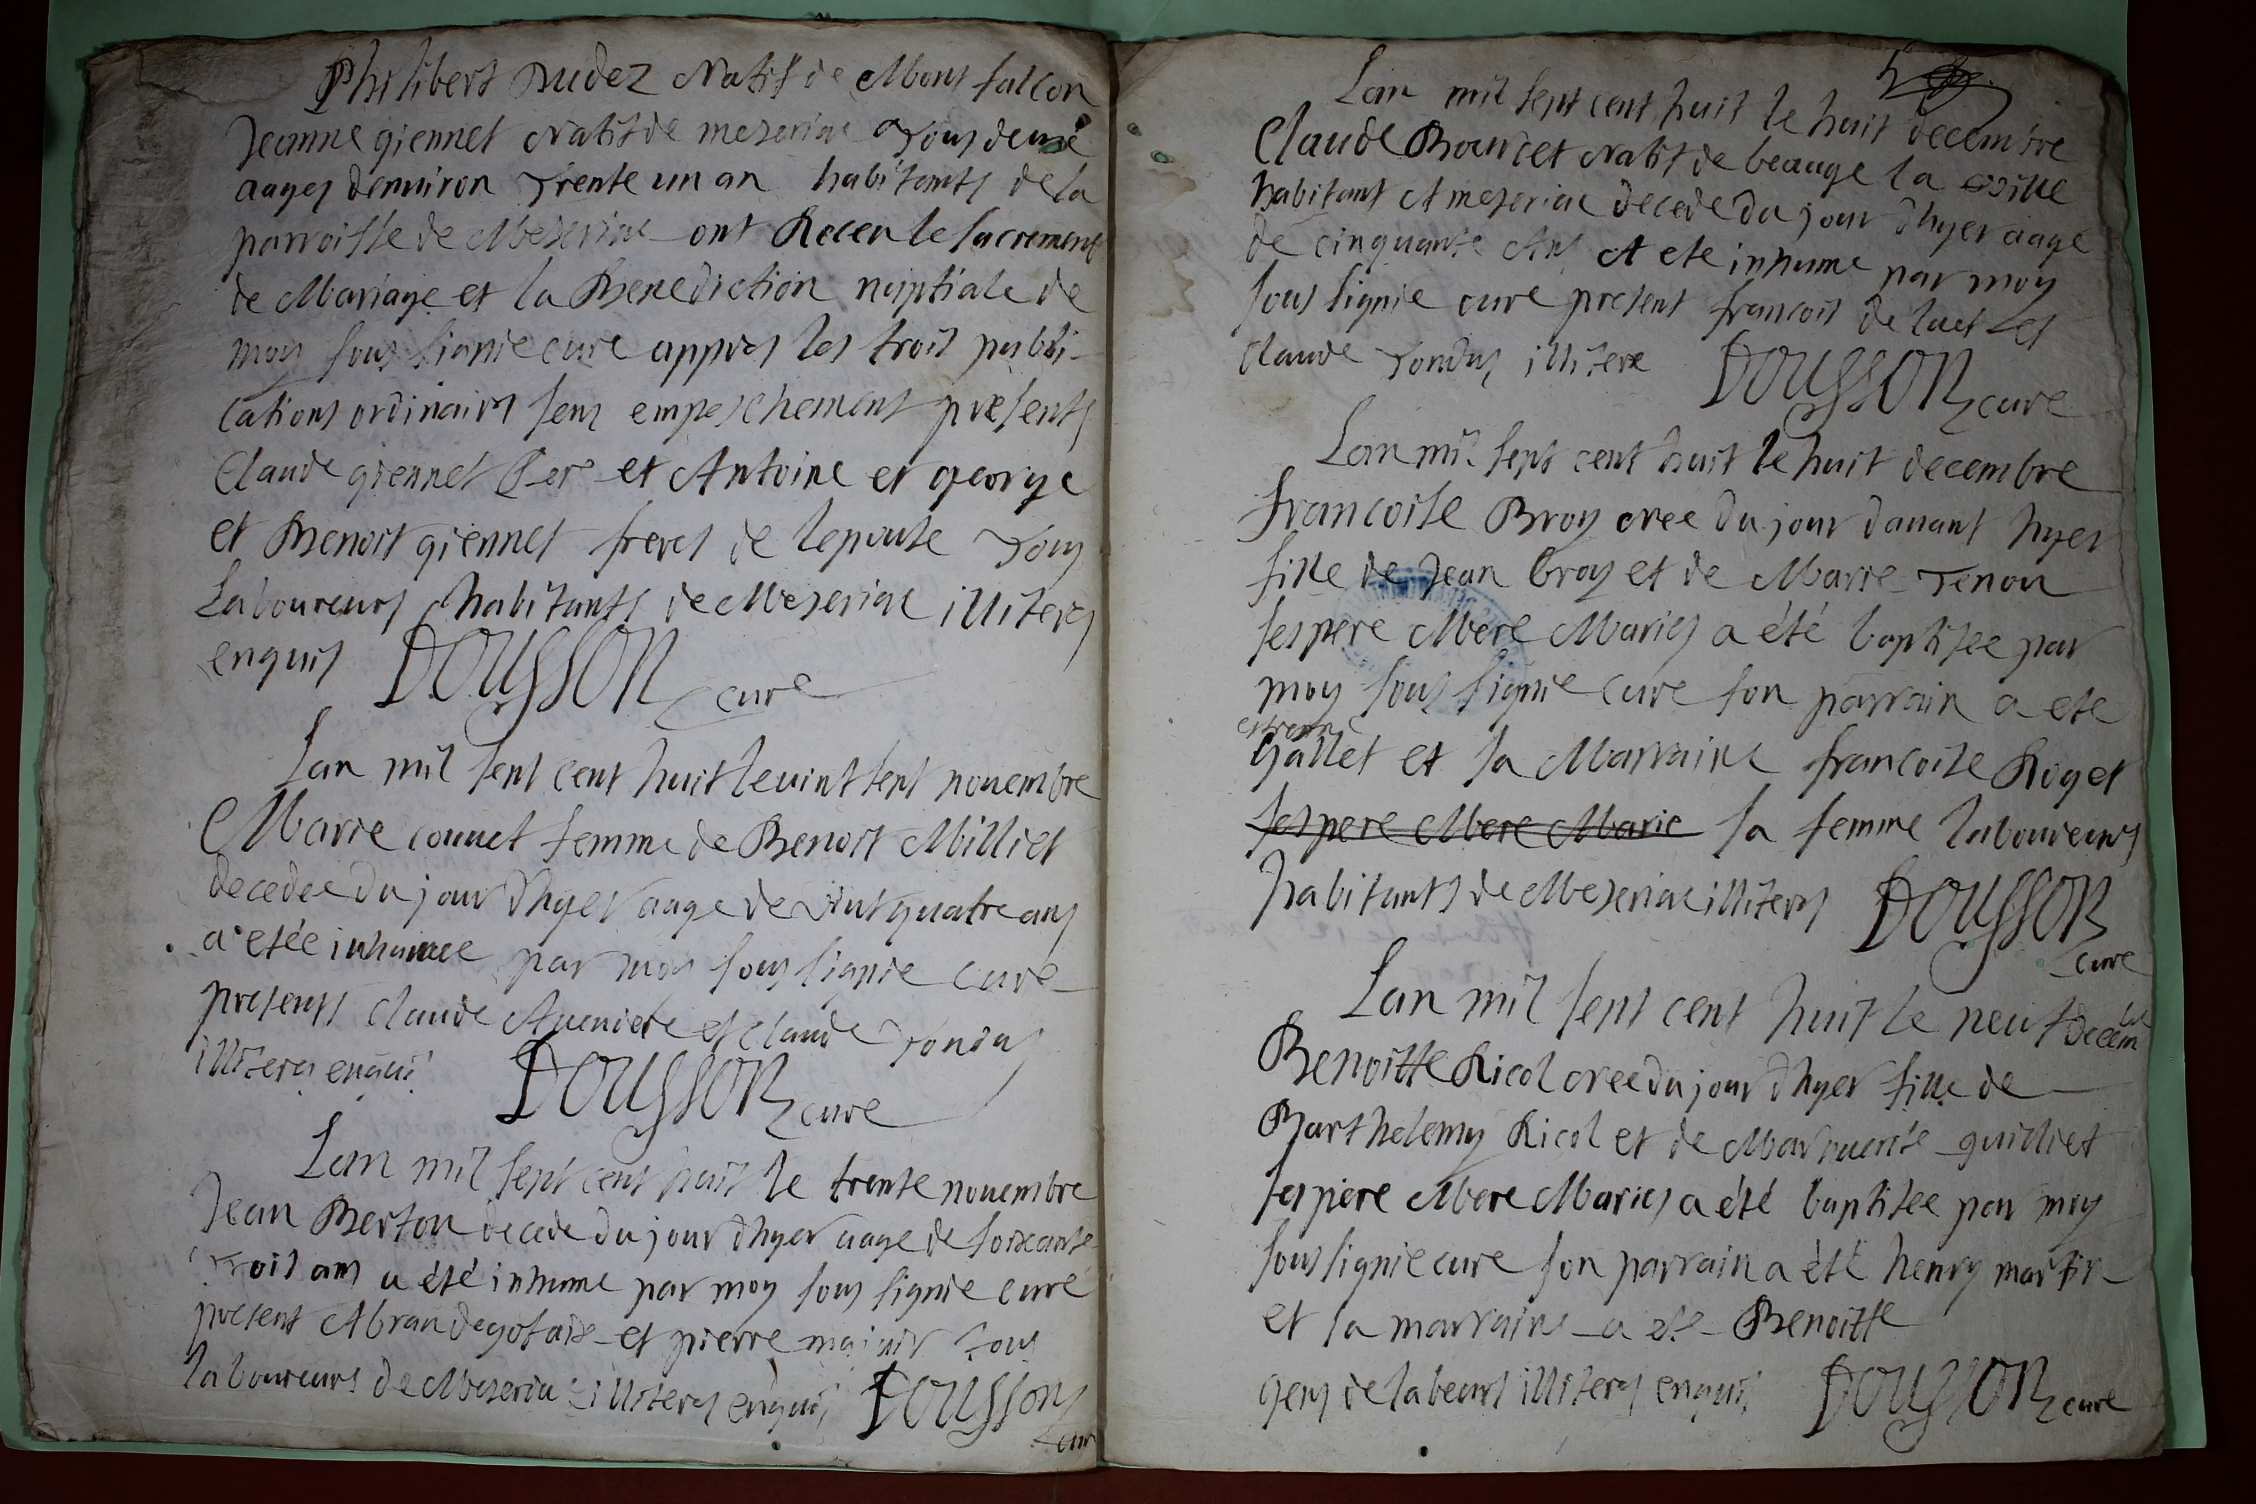 Philibert Nudez Natif de Mont falcon
Jeanne giennet Natif de mezeriac Tous deux
aages denviron Trente un an habitants de la
parroisse de Mezeriac ont Receu le sacrement
de Mariage et la Benediction niptiale de
moy sous signie cure appres les troil publi-
cations ordinaires sens empeschement presents
Claude giennet Per et Antoine et george
et Benoit giennet freres de lepouse Tous
Laboureurs habitants de Mezeriac illiteres
enquis DOUSSON cure
Lan mil sept cent huit le vint sept novembre
Marie connet femme de Benoit Milliet
decedee du jour d'hyer aage de vint quatre ans
a etée inhumee par moy sous signie cure
presents claude Aveniere et claude Tondus
illiteres enquis DOUSSON cure
Lan mil sept cent huit le trente novembre
Jean Berton decede du jour d'hyer aage de soixante
Troil ans a été inhume par moy sous signie cure
present et pierre tous
laboureurs de Mezeriac illiteres enquis DOUSSON
cure
5
Lan mil sept cent huit le huit decembre
Claude Bourcet Natif de beauge la ville
habitant A mezeriac decede du jour d'hyer aage
de cinquante Ans A ete inhume par moy
sous signie cure present francois de luet et
claude Tondus illitere DOUSSON cure
Lan mil sept cent huit le huit decembre
francoise Broy cree du jour davant hyer
fille de Jean broy et de Marie Tenon
ses pere Mere Maries a été baptisee par
moy sous signie cure son parrain a ete
estienne
gallet et sa Marraine francoise Roget
ses pere Mere Marie sa femme laboureurs
habitants de Mezeriac illiteres DOUSSON
cure
Lan mil sept cent huit le neuf decem
bre
Benoitte Ricol cree du jour d'hyer fille de
Barthelemy Ricol et de Marhuerite guilliet
ses piere Mere Maries a été baptisee par moy
sous signie cure son parrain a été henry martin
et sa marraine a ete Benoitte
gens de labeurs illiteres enquis DOUSSON cure